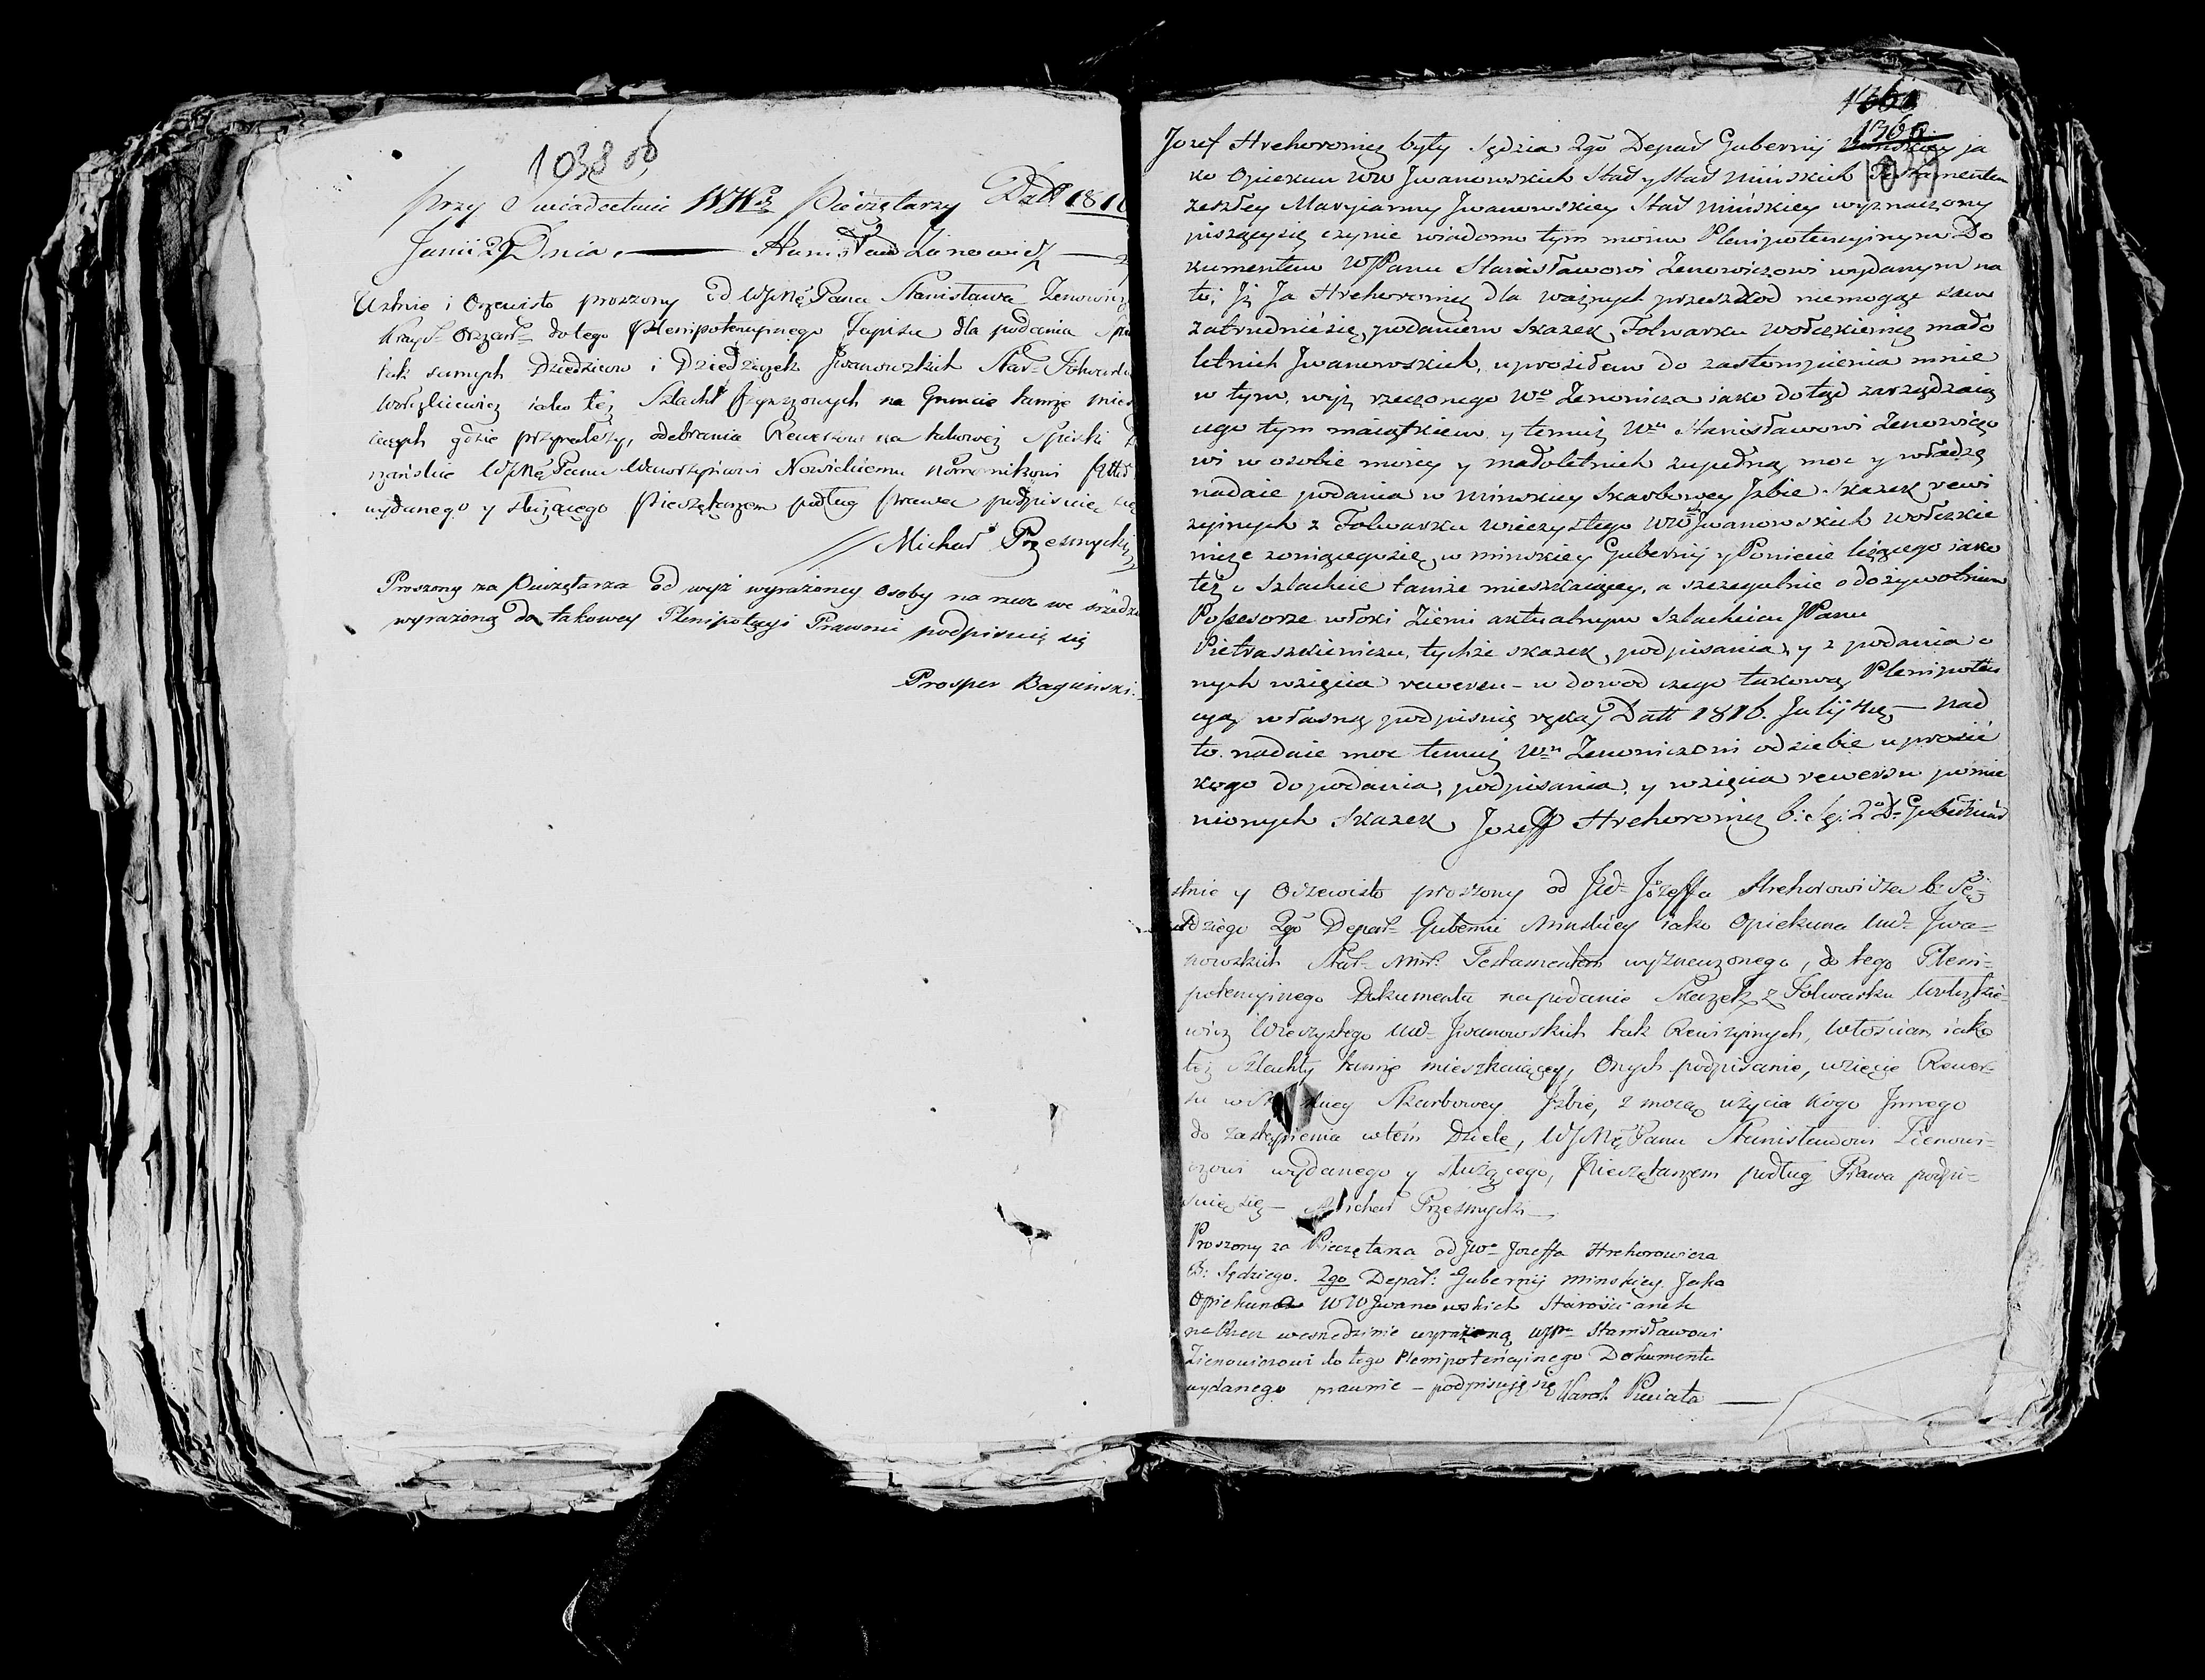 1038 об
przy Swiadectwie WWch Pieczętarzy Datt 181
Junii 29 Dnia. — Stanisław Zienowicz —
Ustnie i Oczewisto proszony od WJMć Pana Stanisława Zenowicza
do tego Plenipotencyjnego Zapisu dla podania
tak samych Dziedzicow i Dziedziczek Jwanowskich Star= Folwarku
Wołczkiewicz iako też Szlacht Czynszowych na Gruncie tamże miesz
iących gdzie przynależy, odebrania Rewersow na takoweż Spiski
WJMć Panu Wawrzyńcowi Nowickiemu Komornikowi
wydanego y służącego Pieczętarzem podług Prawa podpisuię się
Michał Przesmycki
Proszony za Pieczętarza od wyż wyrażoney Osoby na rzecz we srzedzi
wyrażoną do takowey Plenipotęcyi Prawnie podpisuię się
Prosper Baginski.
1360
1039
Jozef Hrehorowicz były Sędzia 2go Depart Gubernij Minskiey ja
ko Opiekun WW Jwanowskich Star y Star Minskich Testamentem
zeszłey Maryianny Jwanowskiey Star Minskiey wyznaczony
piszący się czynie wiadomo tym moim Plenipotencyinym Do
kumentem WJPanu Stanisławowi Zenowiczowi wydanym na
to; Jż Ja Hrehorowicz dla ważnych przeszkod niemogąc sam
zatrudnić się podaniem Skazek Folwarku Wołczkiewicz mało
letnich Jwanowskich, uprosiłem do zastompienia mnie
w tym, wyż rzeczonego Wo Zenowicza iako dotąd zarządzaią
cego tym maiątkiem y temuż Wmu Stanisławowi Zenowiczo
wi w osobie moiey y małoletnich zupełną moc y władzę
nadaie podania w Minskiey Skarbowey Jzbie Skazek rewi
zyjnych z Folwarku wieczystego WW Jwanowskich Wołczkie
wicze zowiącego się w Minskiey Gubernij y Powiecie leżącego iako
też o Szlachcie tamże mieszkaiącey, a szczegulnie o dożywotnim
Possesorze włoki Ziemi aktualnym Szlachcicu JPanu
Pietraszkiewiczu, tychże skazek podpisania, y z podania o
nych wzięcia rewersu – w dowod czego takową Plenipoten
cyą własną podpisuię ręką Datt 1816. Julij – Nad
to nadaie moc temuż Wmu Zenowiczowi od siebie uprosić
kogo do podania, podpisania, y wzięcia rewersu pomie
nionych Skazek Jozeff Hrehorowicz b: Sę: 2o Dt Guber: Miń
stnie y Oczewisto proszony od JW= Józeffa Hrehorowicza b: Sę=
dziego 2go Depar= Gubernii Minskiey iako Opiekuna WW= Jwa=
nowskich Star= Miń: Testamentem wyznaczonego, do tego Pleni=
potencyinego Dokumentu na podanie Skazek z Folwarku Wołczkie=
wicz Wieczystego WW= Jwanowskich tak Rewizyinych, Włościan iako
też Szlachty tamże mieszkaiącey, Onych podpisanie, wzięcie Rewer=
su w skiey Skarbowey Jzbie, z mocą użycia kogo Jnnego
do zastąpienia w tem Dziele, WJMć Panu Stanisławowi Zienowi=
czowi wydanego y służącego, Pieczętarzem podług Prawa podpi=
suię się – Michał Przesmycki –
Proszony za Pieczętarza od JWo Jozeffa Hrehorowicza
B: Sędziego. 2go Depat: Gubernij Minskiey. Jako
Opiekuna WW Jwanowskich Starościanek
na Rzecz we srzedzinie wyrażoną WJPu Stanisławowi
Zienowiczowi do tego Plenipotencyinego Dokumentu
wydanego prawnie – podpisuję się Karol Puciata —